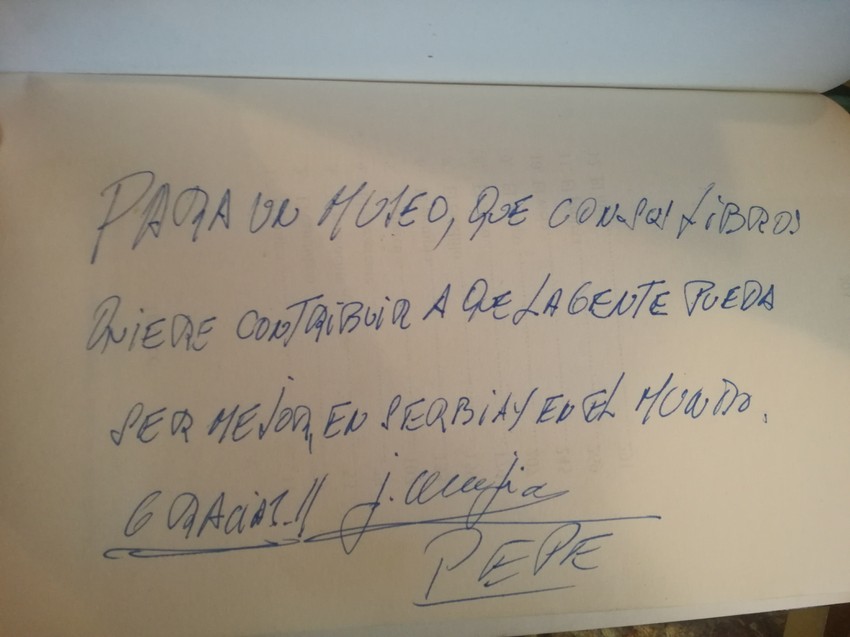 PARA UN MUSEO, QUE CON SUS LIBROS
QUIERE CONTRIBUIR A QUE LA GENTE PUEDA
SER MEJOR, EN SERBIA Y EN EL MUNDO.
GRACIAS!! J. Mujica
PEPE